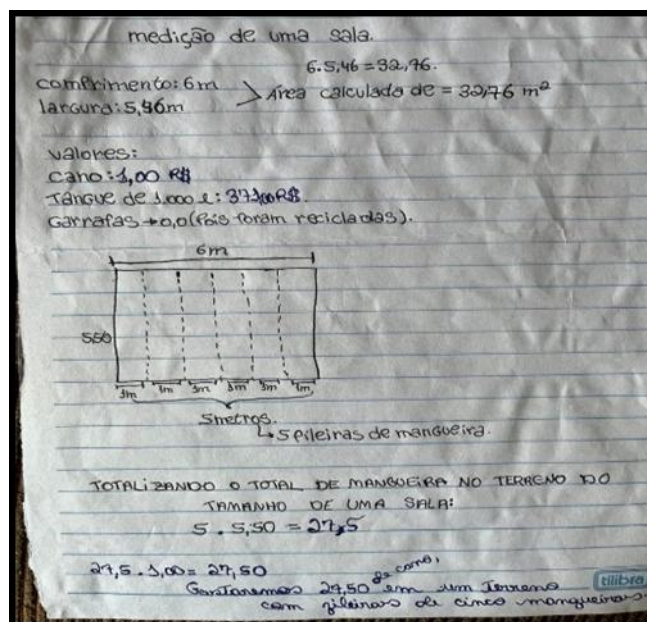 medição de uma sala.
6.5,46 = 32,76.
comprimento: 6m
largura: 5,46m
Área calculada de = 32,76 m²
valores:
cano: 1,00 R$
Tanque de 1.000 l: R$
Garrafas → 0,0 (Pois foram recicladas).
6m
550
1m 1m 1m 1m 1m 1m
5 metros.
↳ 5 fileiras de mangueira.
TOTALIZANDO O TOTAL DE MANGUEIRA NO TERRENO DO
TAMANHO DE UMA SALA:
5 . 5,50 = 27,5
27,5 . 1,00 = 27,50
Gastaremos 27,50 de cano, em um Terreno
com fileiras de cinco mangueiras.
tilibra